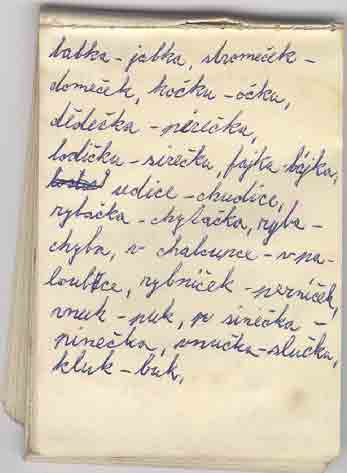 babka - jabka, stromeček -
domeček, kočku - očku,
dědečka - péréčka,
lodičku - sirečka, fajka - bájka,
udice - chudice,
rybáčka - chytáčka, ryba -
chyba, v chaloupce - v pa-
loubce, rybníček - perníček,
vnuk - puk, sinéčka -
pinečka, vnučka - slučka,
kluk - buk,